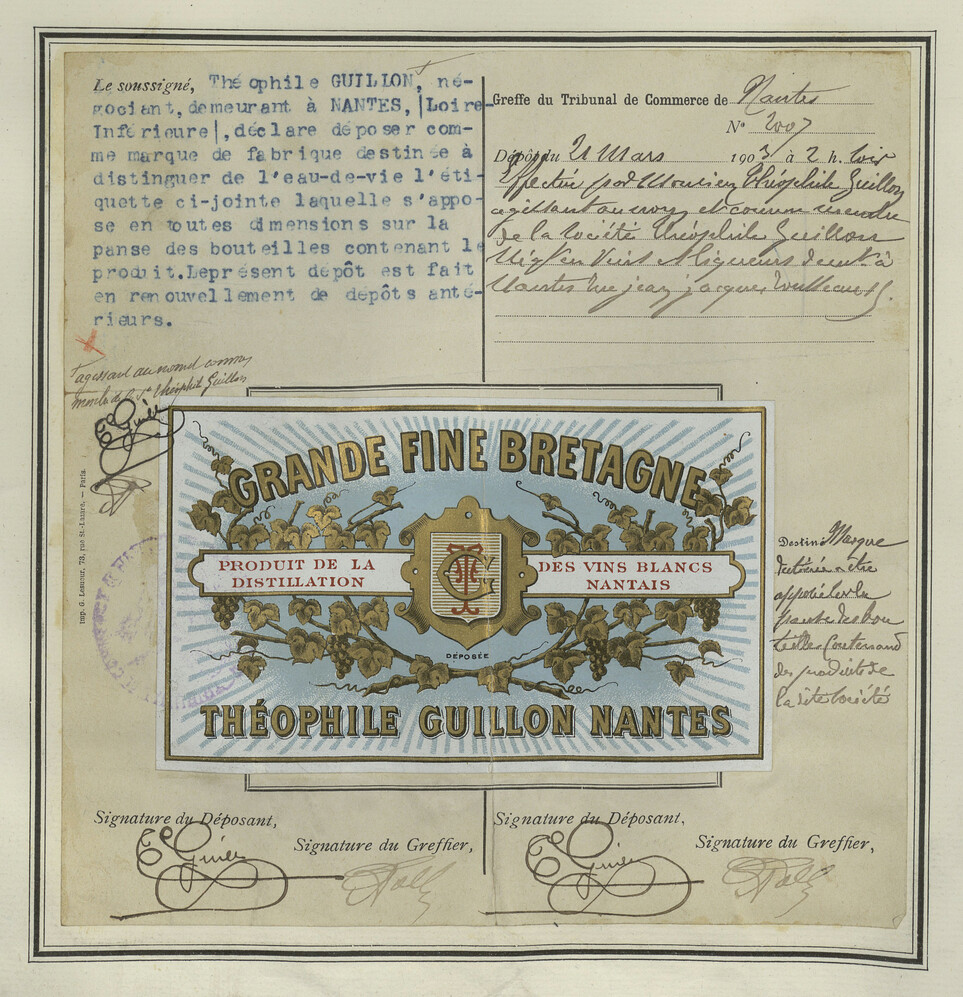 Le soussigné, Théophile GUILLON, né-
gociant, demeurant à NANTES, |Loire-
Inférieure|, déclare déposer com-
me marque de fabrique destinée à
distinguer de l'eau-de-vie l'éti-
quette ci-jointe laquelle s'appo-
se en toutes dimensions sur la
panse des bouteilles contenant le
produit. Leprésent dépôt est fait
en renouvellement de dépôts anté-
rieurs.
agissant au nom et comme
membre de la Sté Théophile Guillon
Imp. G. Lesueur, 73, rue St-Lazare. — Paris.
Greffe du Tribunal de Commerce de Nantes
N° 2007
Dépôt du 21 Mars 1903 à 2 h. soir
Effectué par Monsieur Théophile Guillon
agissant au nom et comme membre
de la Société Théophile Guillon
Nantes rue jean jacques Rousseau
GRANDE FINE BRETAGNE
PRODUIT DE LA
DISTILLATION
DES VINS BLANCS
NANTAIS
DÉPOSÉE
THÉOPHILE GUILLON NANTES
Destiné Marque
destinée a être
apposée sur la
panse des bou
teilles contenant
des produits de
la dite Société
Signature du Déposant,
Signature du Greffier,
Signature du Déposant,
Signature du Greffier,